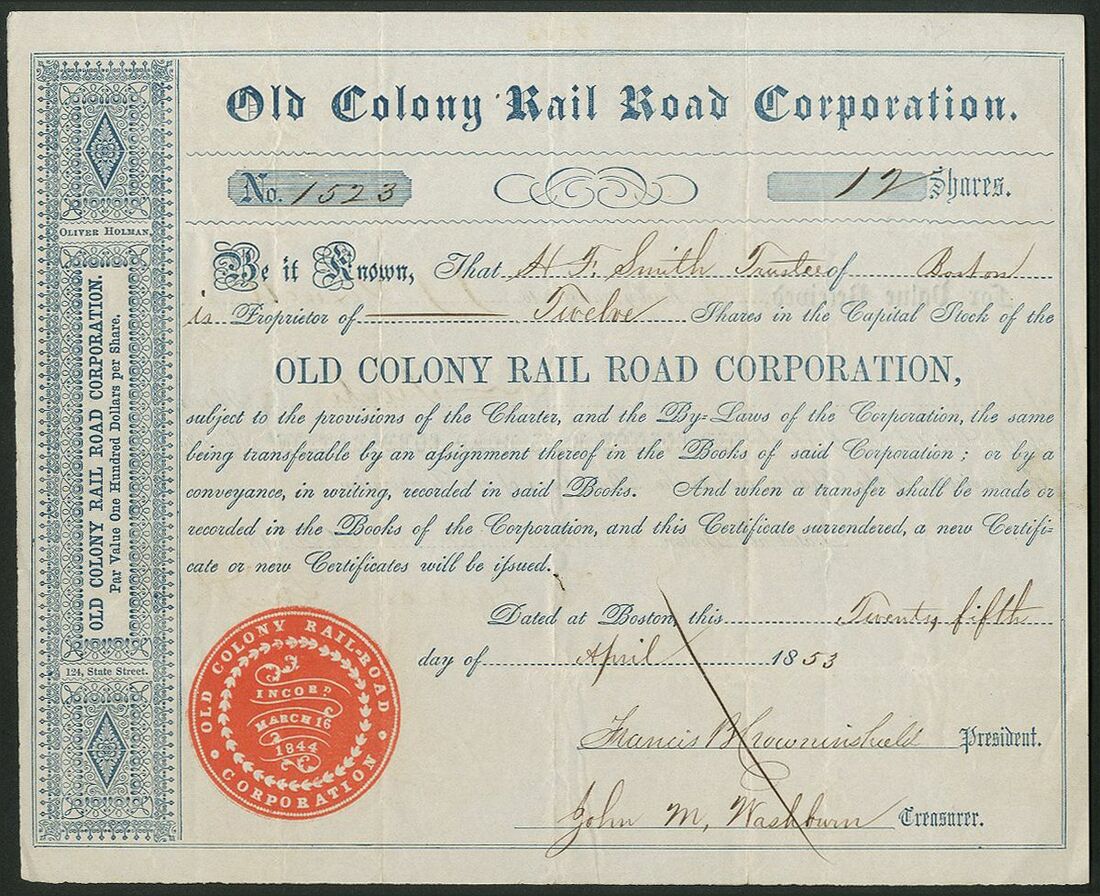 Old Colony Rail Road Corporation.
No. 1523
12 Shares.
Be it Known, That H. F. Smith Trustee of Boston
is Proprietor of Twelve Shares in the Capital Stock of the
OLD COLONY RAIL ROAD CORPORATION,
subject to the provisions of the Charter, and the By-Laws of the Corporation, the same
being transferable by an assignment thereof in the Books of said Corporation; or by a
conveyance, in writing, recorded in said Books. And when a transfer shall be made or
recorded in the Books of the Corporation, and this Certificate surrendered, a new Certifi-
cate or new Certificates will be issued.
Dated at Boston, this Twenty fifth
day of April 1853
Francis B Crowninshield President.
John M. Washburn Treasurer.
OLIVER HOLMAN,
OLD COLONY RAIL ROAD CORPORATION.
Par Value One Hundred Dollars per Share.
124, State Street.
OLD COLONY RAIL-ROAD
CORPORATION
INCORP.
MARCH 16
1844